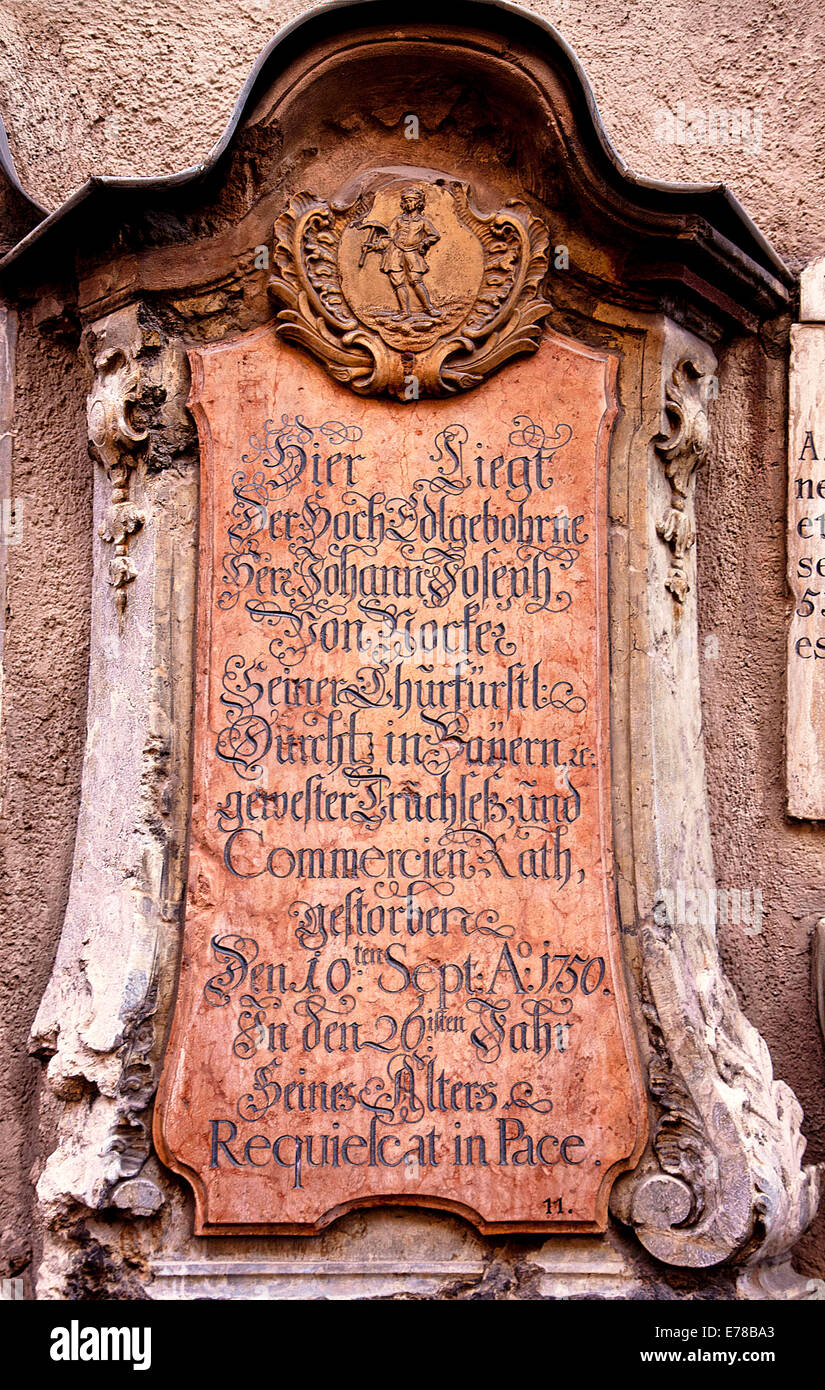 Hier Liegt
Der Hoch Edlgebohrne
Herr Johann Joseph,
Von Nocker
Seiner Churfürstl:
Dürchl: in Bayern. ec:
gewester Truchseß, und
Commercien Rath,
gestorben
Den 10:ten Sept: Aº: 1750.
In den 26:isten Jahr
Seines Alters.
Requiescat in Pace.
11.
A
ne
et
se
es
alamy stock photo
alamy
E78BA3
www.alamy.com